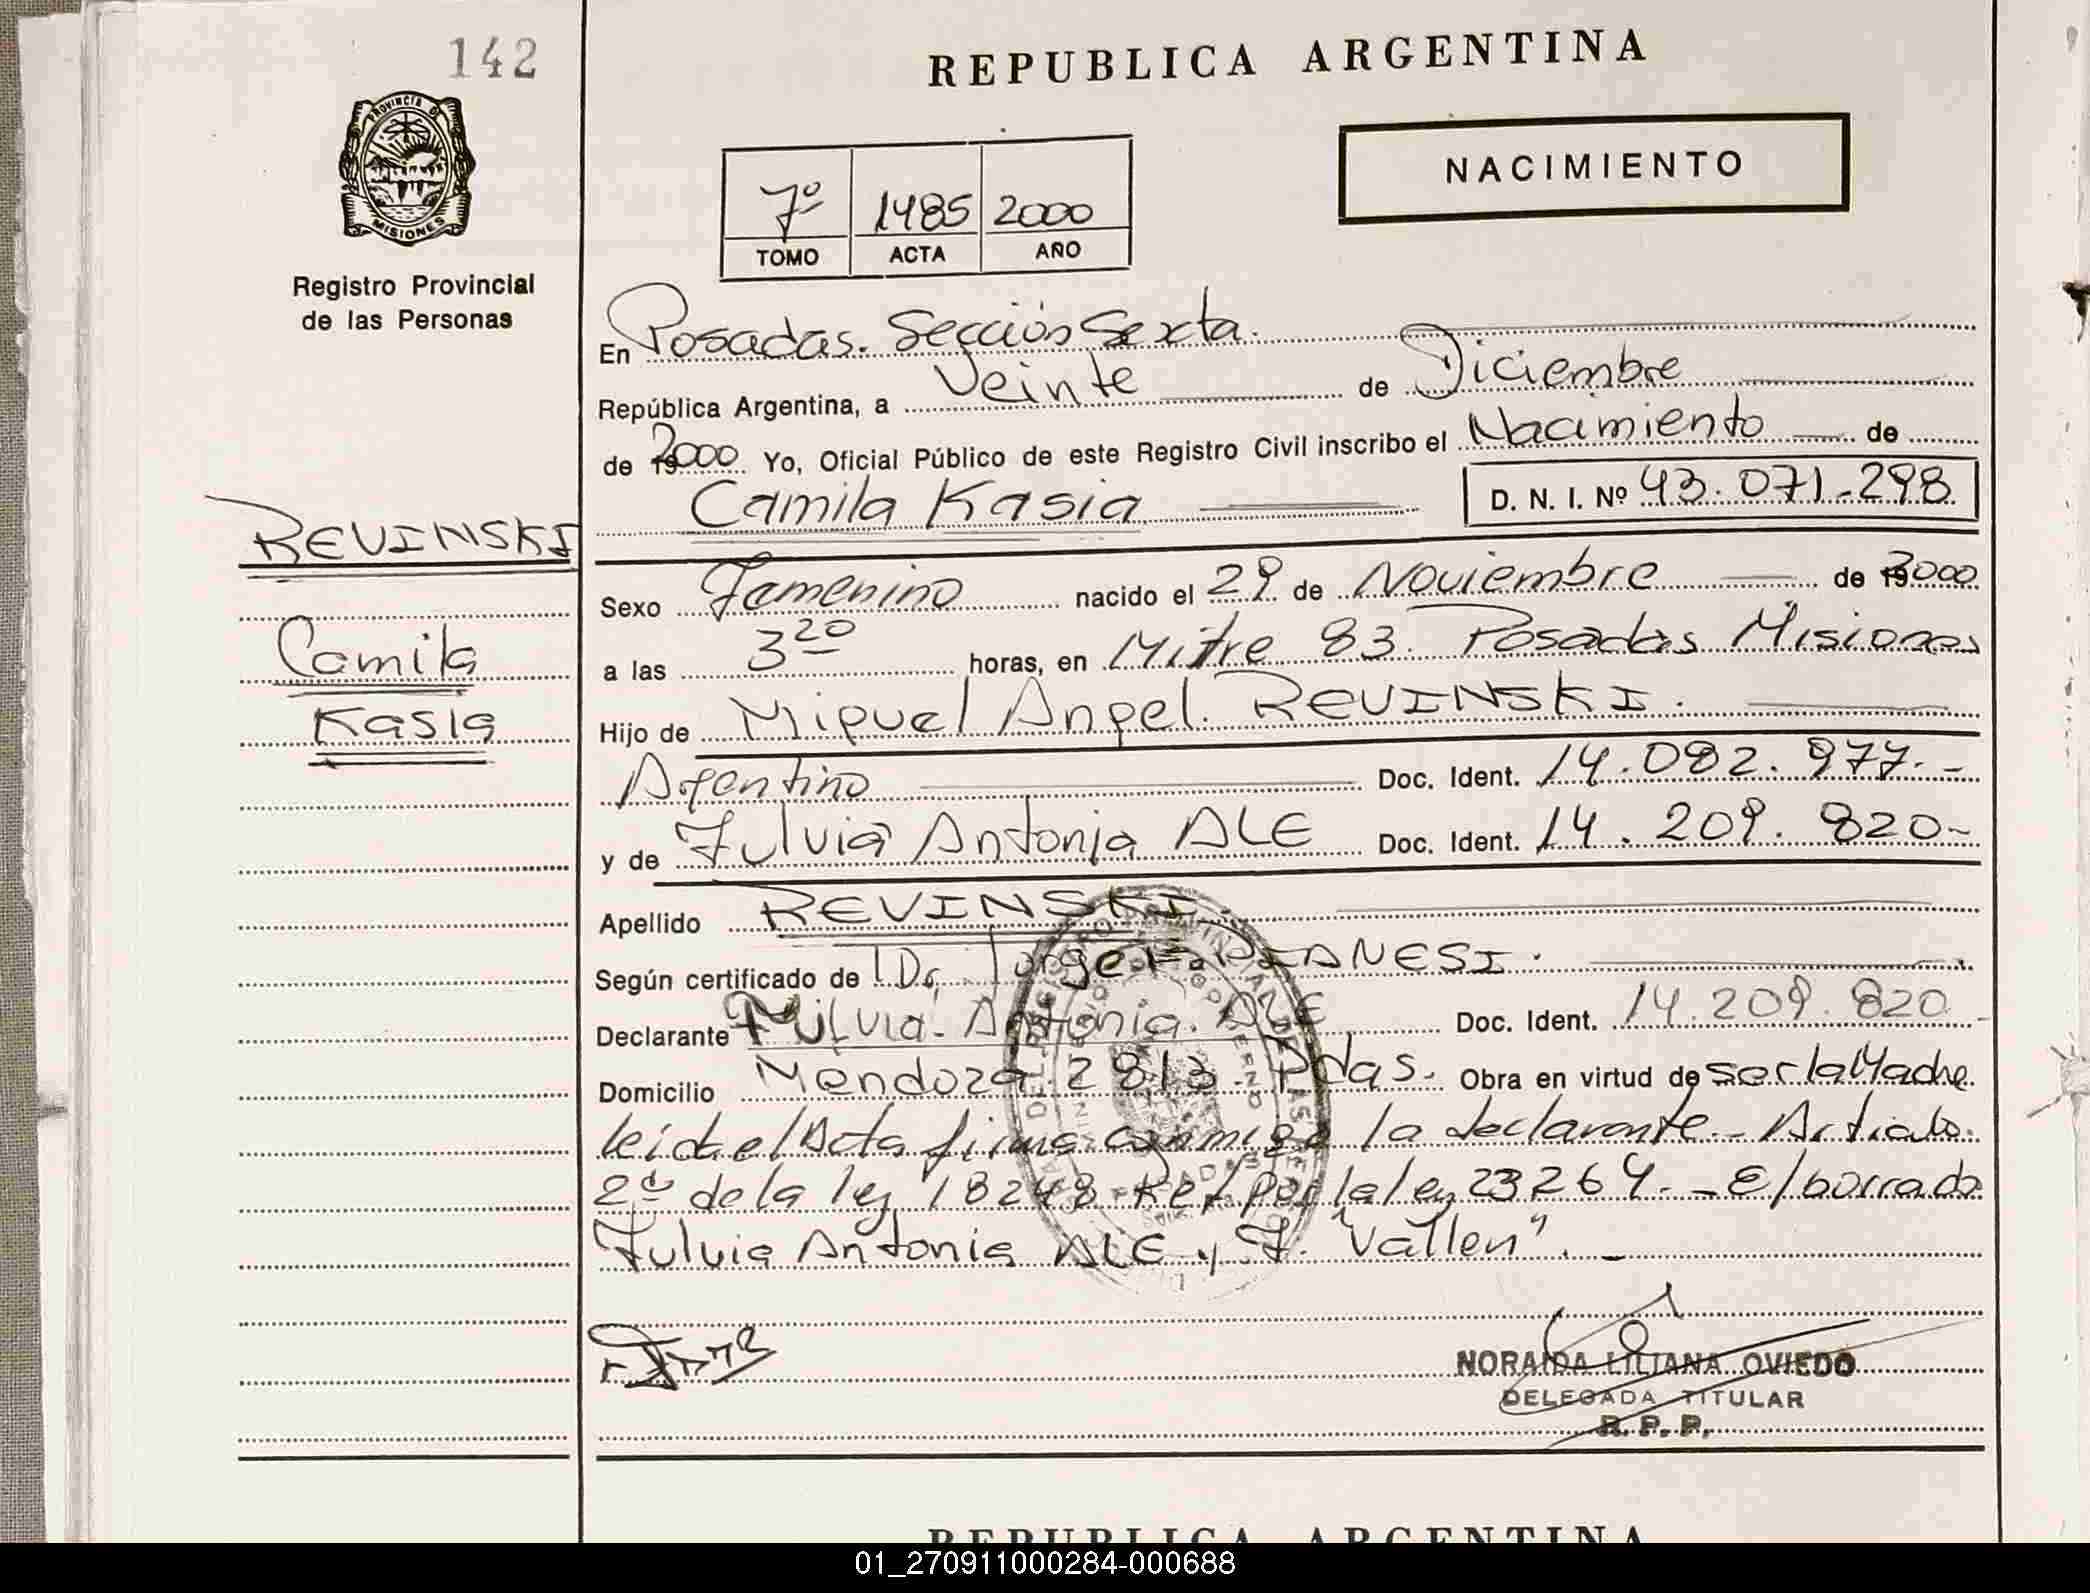 142
REPUBLICA ARGENTINA
NACIMIENTO
7º 1485 2000
TOMO ACTA AÑO
PROVINCIA DE
MISIONES
Registro Provincial
de las Personas
En Posadas. Sección Sexta.
República Argentina, a Veinte de Diciembre
de 2000 Yo, Oficial Público de este Registro Civil inscribo el Nacimiento de
Camila Kasia D. N. I. Nº 43.071.298
REVINSKI
Camila
Kasia
Sexo Femenino nacido el 29 de Noviembre de 2000
a las 3 20 horas, en Mitre 83. Posadas Misiones
Hijo de Miguel Angel REVINSKI.
Argentino Doc. Ident. 14.092.977.-
y de Fulvia Antonia ALE Doc. Ident. 14.209.820-
Apellido REVINSKI.
Según certificado de Dr. Jorge PIANESI.
Declarante Fulvia Antonia ALE Doc. Ident. 14.209.820-
Domicilio Mendoza 2813. Pdas. Obra en virtud de ser la Madre
leida el Acta firma conmigo la declarante.- Articulo
2º de la ley 18248 Ref por la ley 23264.- E/borrado
Fulvia Antonia ALE y F. "Vallen".-
NORAIDA LILIANA OVIEDO
DELEGADA TITULAR
R. P. P.
REPUBLICA ARGENTINA
01_270911000284-000688